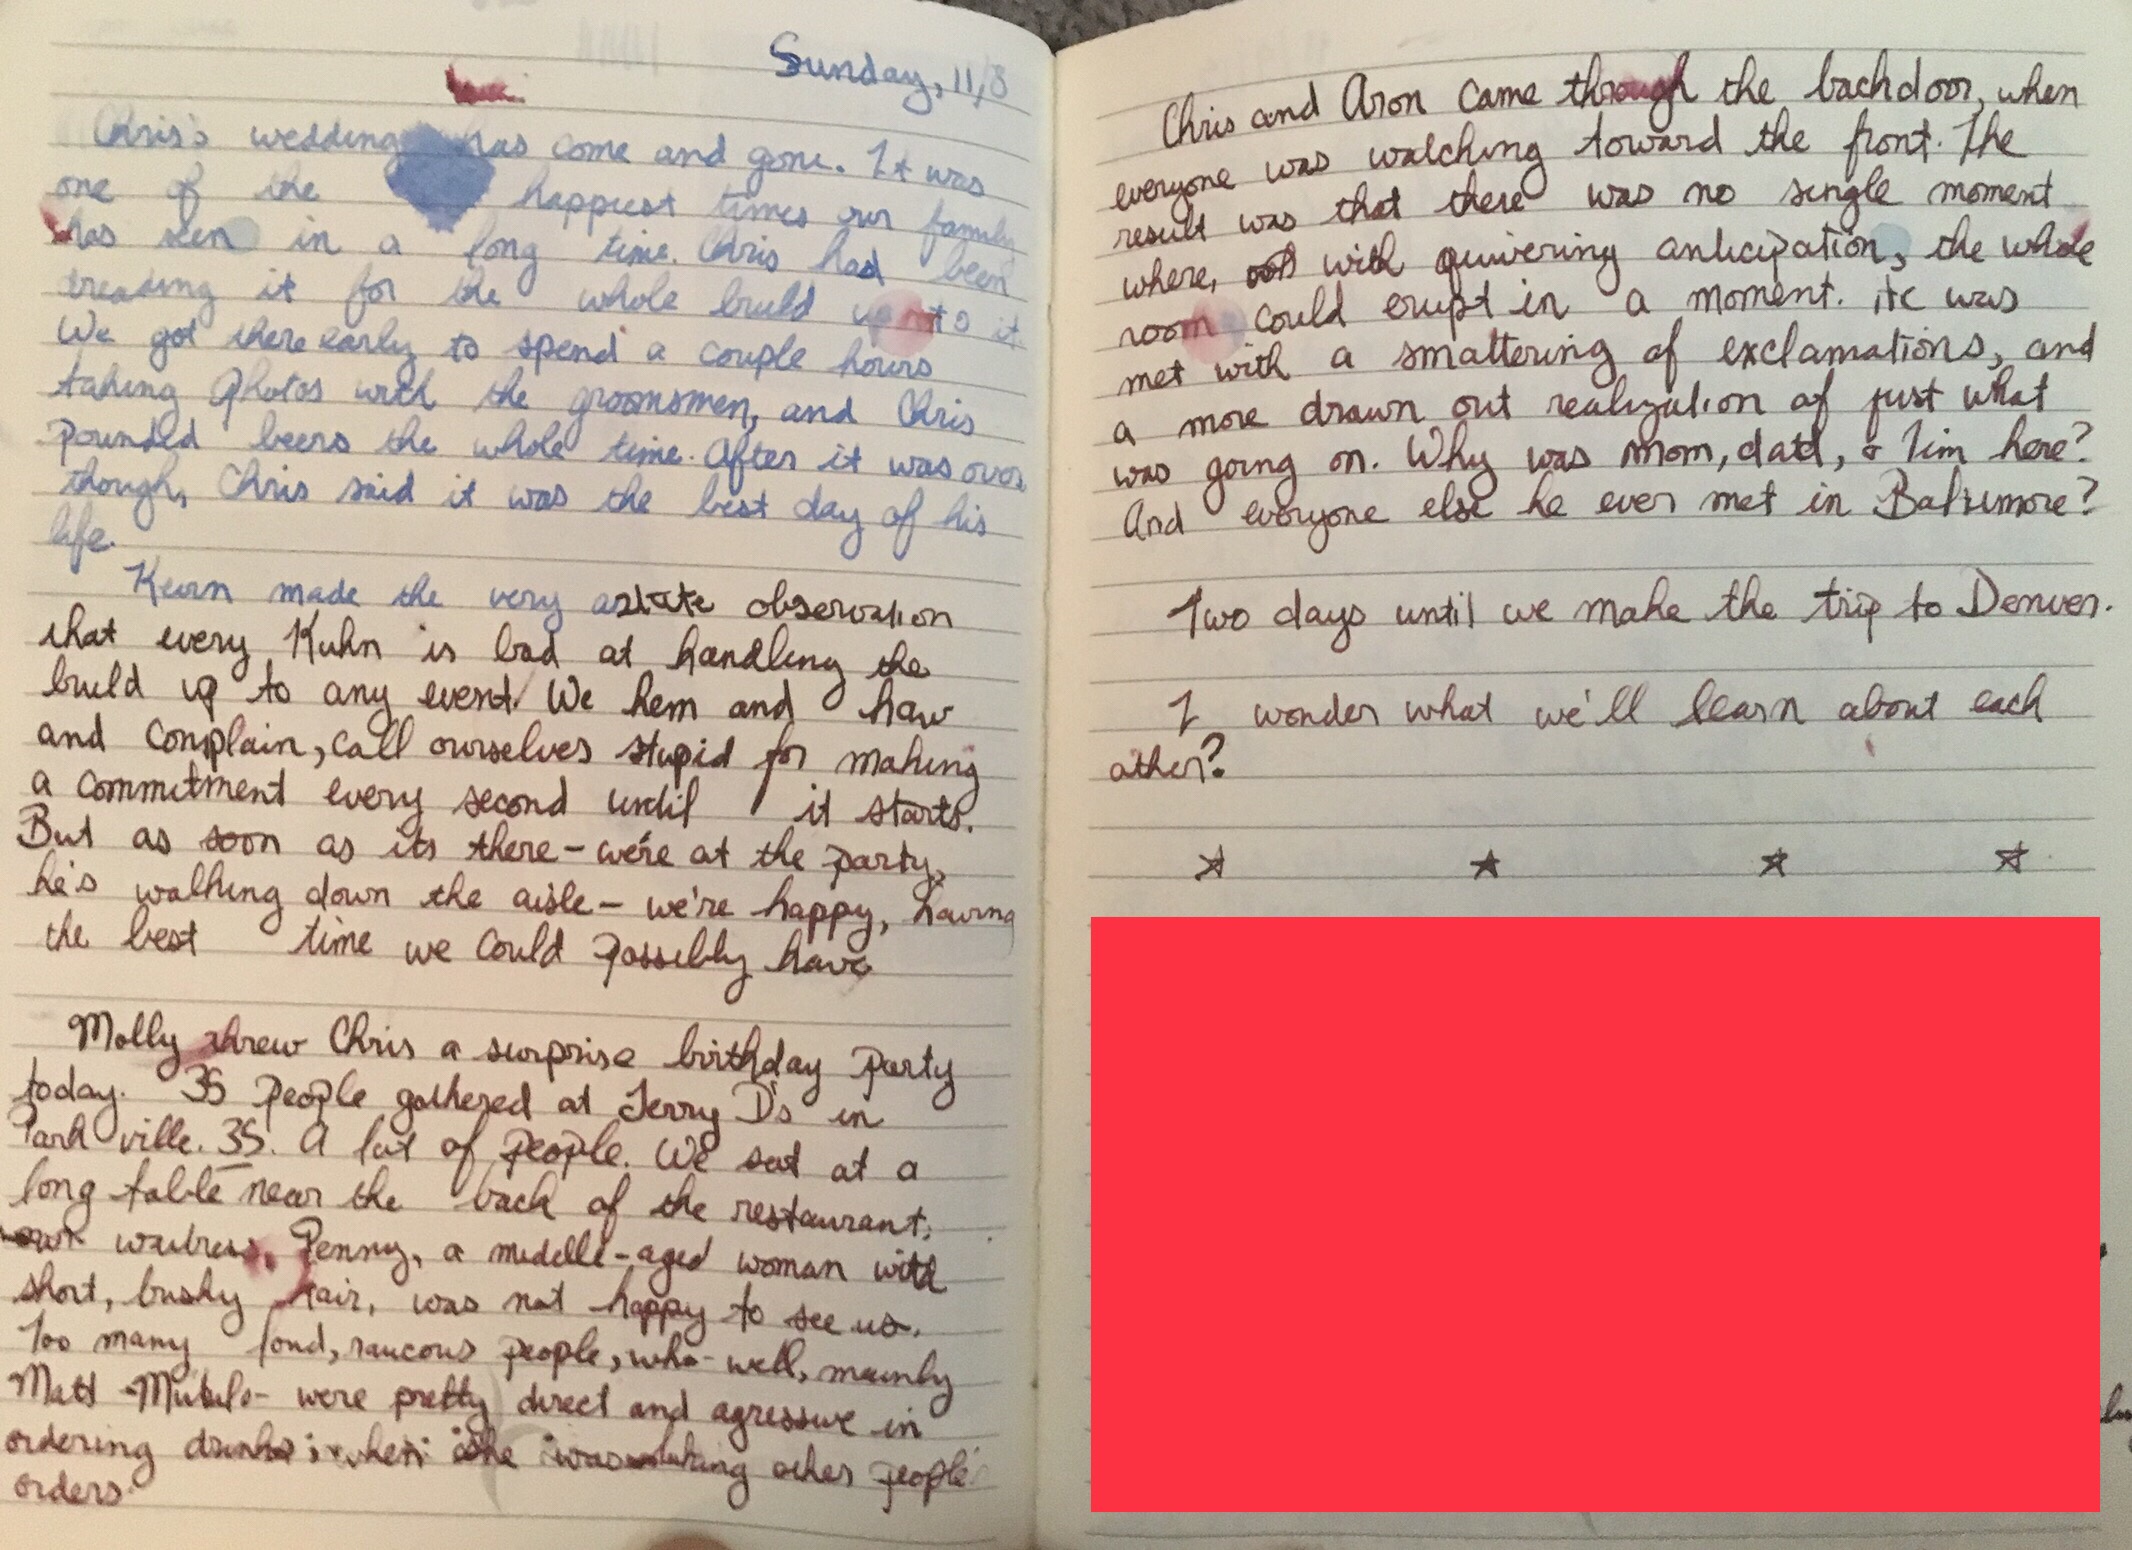 Sunday, 11/8
Chris's wedding has come and gone. It was
one of the happiest times our family
has seen in a long time. Chris had been
dreading it for the whole build up to it.
We got there early to spend a couple hours
taking photos with the groomsmen, and Chris
pounded beers the whole time. After it was over
though, Chris said it was the best day of his
life.
made the very astute observation
that every Kuhn is bad at handling the
build up to any event. We hem and haw
and complain, call ourselves stupid for making
a commitment every second until it starts.
But as soon as its there - we're at the party,
he's walking down the aisle - we're happy, having
the best time we could possibly have
Molly threw Chris a surprise birthday party
today. 35 people gathered at Jerry D's in
Parkville. 35. A lot of people. We sat at a
long table near the back of the restaurant,
our waitress, Penny, a middle-aged woman with
short, bushy hair, was not happy to see us.
Too many loud, raucous people, who - well, mainly
Matt - were pretty direct and agressive in
ordering drinks when she was taking other people's
orders.
Chris and Aron came through the backdoor, when
everyone was watching toward the front. The
result was that there was no single moment
where, with quivering anticipation, the whole
room could erupt in a moment. itc was
met with a smattering of exclamations, and
a more drawn out realization of just what
was going on. Why was mom, dad, & Tim here?
And everyone else he ever met in Baltimore?
Two days until we make the trip to Denver.
I wonder what we'll learn about each
other?